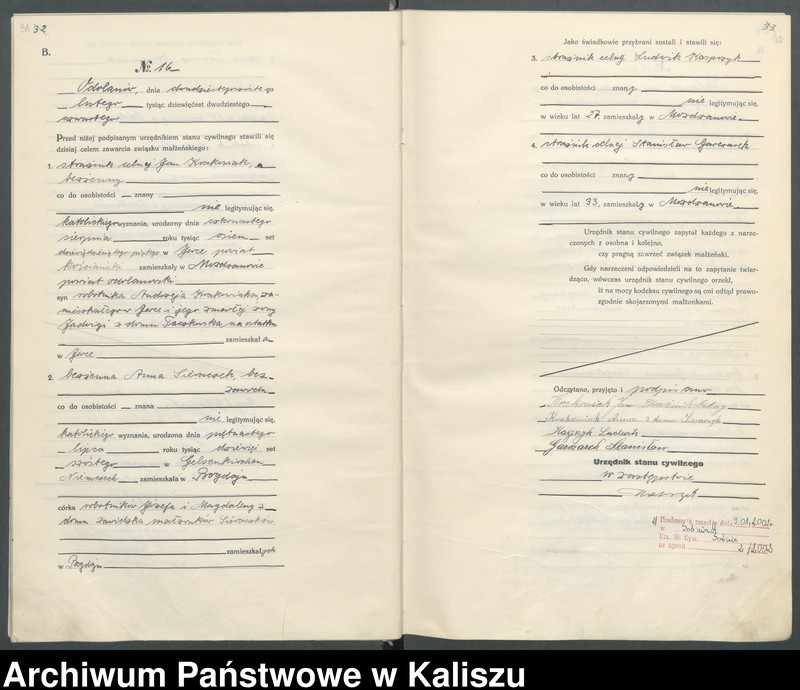 32
B.
No 16
Odolanów, dnia dwudziestego go
lutego tysiąc dziewięćset dwudziestego
czwartego
Przed niżej podpisanym urzędnikiem stanu cywilnego stawili się
dzisiaj celem zawarcia związku małżeńskiego:
1. strażnik celny Jan Krakowiak,
bezżenny
co do osobistości znany
nie legitymując się,
katolickiego wyznania, urodzony dnia czternastego
sierpnia roku tysiąc osiem set
dziewięćdziesiątego piątego w Jerce powiat
kościański zamieszkały w Mozdzanowie
powiat odolanowski
syn robotnika Andrzeja Krakowiaka, za-
mieszkałego w Jerce i jego zmarłej żony
Jadwigi z domu na ostatku
zamieszkał
w Jerce
2. bezżenna Anna Sieraczek, bez
zawodu
co do osobistości znana
nie legitymując się,
katolickiego wyznania, urodzona dnia piętnastego
lipca roku tysiąc dziewięć set
szóstego w Gelsenkirchen
Niemczech zamieszkała w Bogdaju
córka robotników Józefa i Magdaleny z
domu małżonków
zamieszkałych
w Bogdaju
33
Jako świadkowie przybrani zostali i stawili się:
3. strażnik celny Ludwik Kasprzyk
co do osobistości znany
nie legitymując się,
w wieku lat 27, zamieszkały w Mozdzanowie
4. strażnik celny Stanisław Garczarek
co do osobistości znany
nie legitymując się,
w wieku lat 33, zamieszkały w Mozdzanowie
Urzędnik stanu cywilnego zapytał każdego z narze-
czonych z osobna i kolejno,
czy pragną zawrzeć związek małżeński.
Gdy narzeczeni odpowiedzieli na to zapytanie twier-
dząco, wówczas urzędnik stanu cywilnego orzekł,
iż na mocy kodeksu cywilnego są oni odtąd prawo-
zgodnie skojarzonymi małżonkami.
Odczytano, przyjęto i podpisano
Krakowiak Jan strażnik celny
Krakowiak Anna z domu Sieraczek
Kasprzyk Ludwik
Garczarek Stanisław
Urzędnik stanu cywilnego
w zastępstwie
zmarł dnia 9.01.2002r.
w
Urz. St. Cyw.
nr zgonu 2/2002
Archiwum Państwowe w Kaliszu